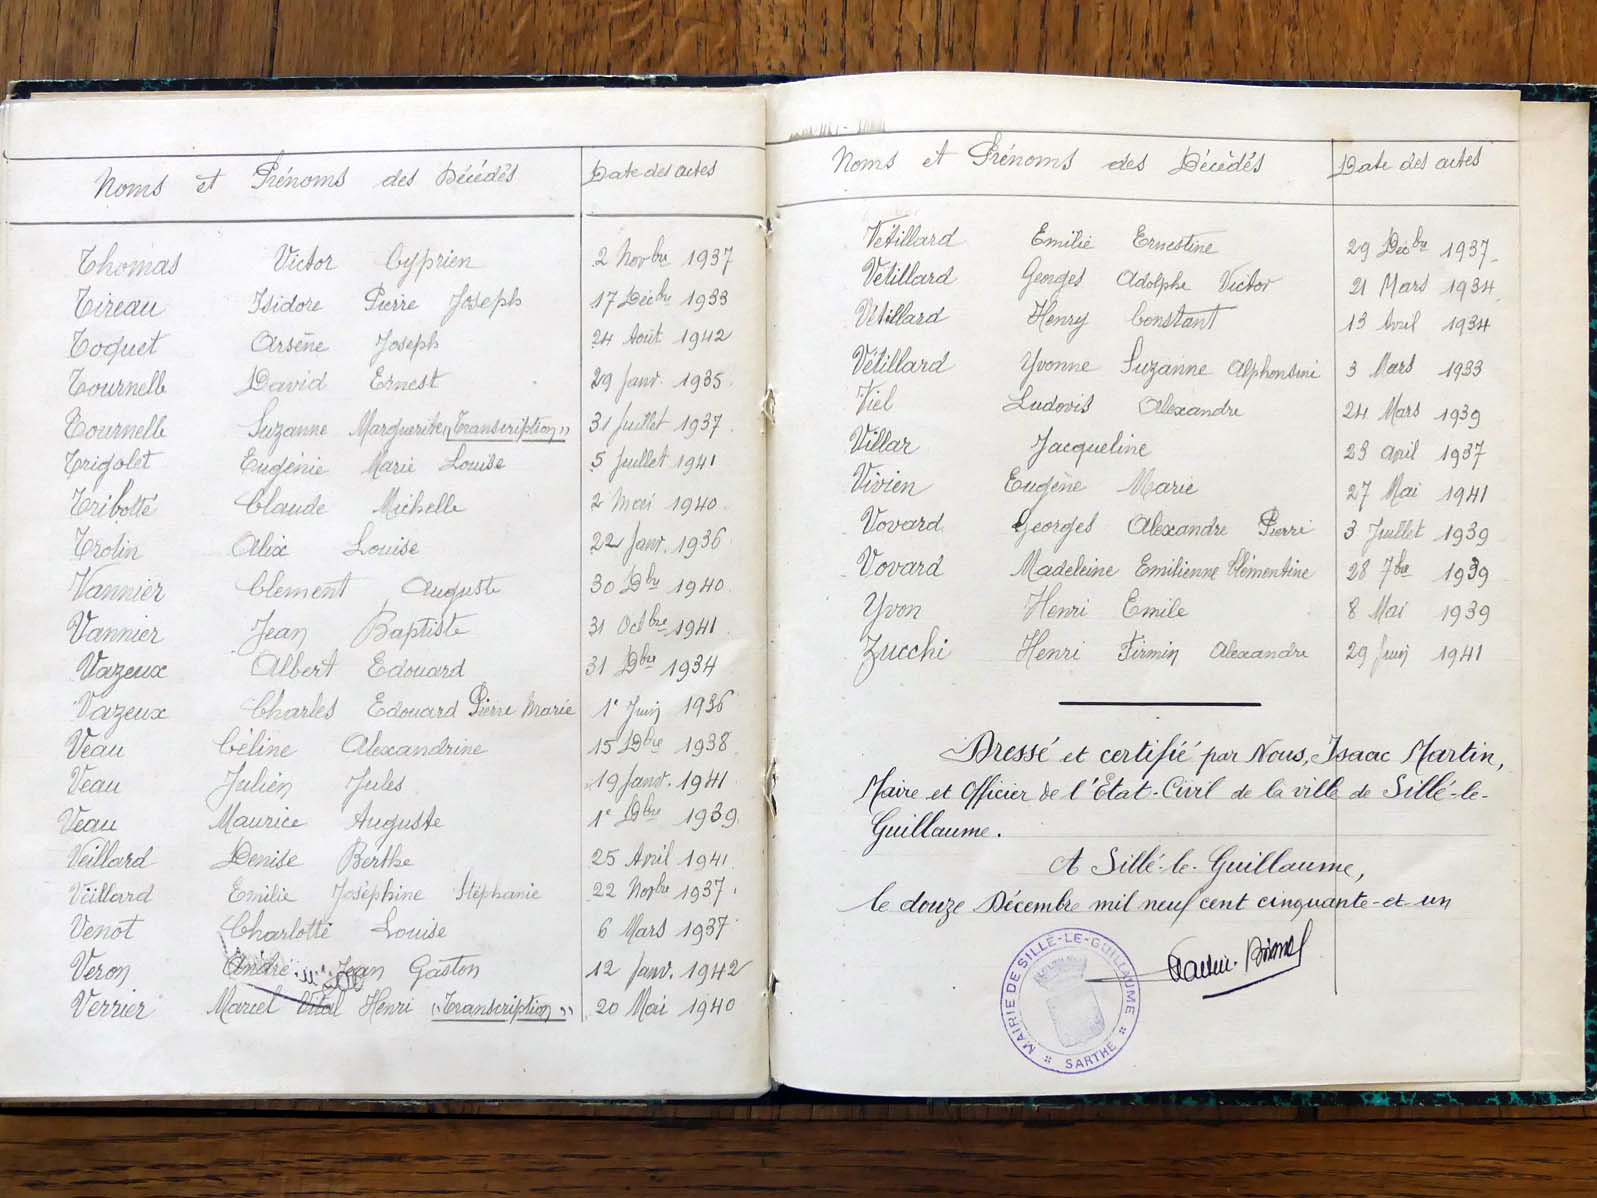 Noms et Prénoms des Décédés Date des actes
Thomas Victor Cyprien 2 Novbre 1937
Tireau Isidore Pierre Joseph 17 Décbre 1933
Toquet Arsène Joseph 24 Août 1942
Tournelle David Ernest 29 Janv. 1935.
Tournelle Suzanne Marguerite "(Transcription)" 31 Juillet 1937.
Trigolet Eugénie Marie Louise 5 Juillet 1941
Tribotté Claude Michelle 2 Mai 1940.
Trolin Alix Louise 22 Janv. 1936
Vannier Clément Auguste 30 Dbre 1940.
Vannier Jean Baptiste 31 Octbre 1941.
Vazeux Albert Edouard 31 Dbre 1934
Vazeux Charles Edouard Pierre Marie 1er Juin 1936
Veau Céline Alexandrine 15 Dbre 1938.
Veau Julien Jules 19 Janv. 1941
Veau Maurice Auguste 1er Dbre 1939.
Veillard Denise Berthe 25 Avril 1941.
Veillard Emilie Joséphine Stéphanie 22 Novbre 1937.
Venot Charlotte Louise 6 Mars 1937
Veron André Jean Gaston 12 Janv. 1942
Verrier Marcel Vital Henri "(Transcription)" 20 Mai 1940
Noms et Prénoms des Décédés Date des actes
Vétillard Emilie Ernestine 29 Décbre 1937.
Vétillard Georges Adolphe Victor 21 Mars 1934.
Vétillard Henry Constant 13 Avril 1934
Vétillard Yvonne Suzanne Alphonsine 3 Mars 1933
Viel Ludovis Alexandre 24 Mars 1939
Villar Jacqueline 23 Avril 1937
Vivien Eugène Marie 27 Mai 1941
Vovard Georges Alexandre Pierre 3 Juillet 1939
Vovard Madeleine Emilienne Clémentine 28 7bre 1939
Yvon Henri Emile 8 Mai 1939
Zucchi Henri Firmin Alexandre 29 Juin 1941
Dressé et certifié par Nous, Isaac Martin,
Maire et Officier de l'Etat-Civil de la ville de Sillé-le-
Guillaume.
A Sillé-le-Guillaume,
le douze Décembre mil neuf cent cinquante-et-un
MAIRIE DE SILLÉ-LE-GUILLAUME
SARTHE